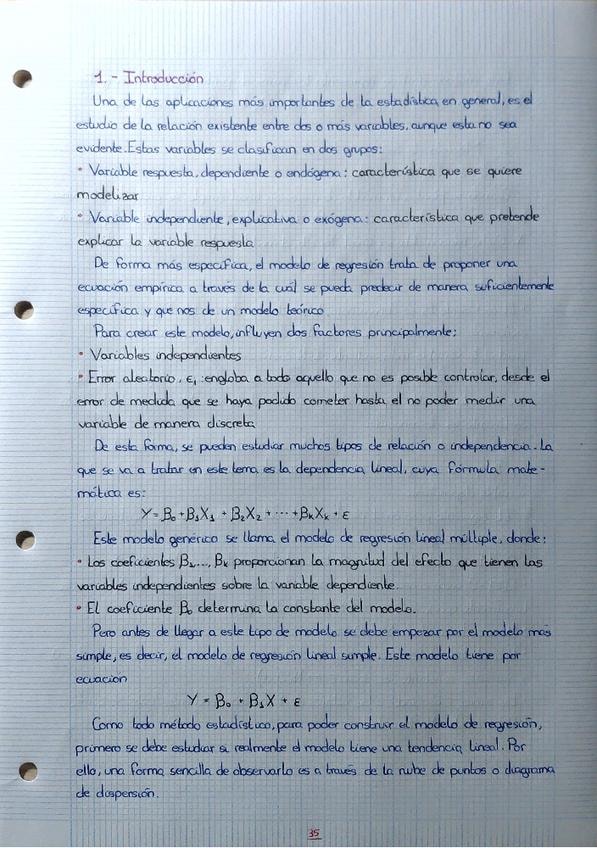 1.- Introducción
Una de las aplicaciones más importantes de la estadística, en general, es el
estudio de la relación existente entre dos o más variables, aunque esta no sea
evidente. Estas variables se clasifican en dos grupos:
• Variable respuesta, dependiente o endógena: característica que se quiere
modelizar
• Variable independiente, explicativa o exógena: característica que pretende
explicar la variable respuesta
De forma más específica, el modelo de regresión trata de proponer una
ecuación empírica a través de la cuál se pueda predecir de manera suficientemente
específica y que nos de un modelo teórico
Para crear este modelo, influyen dos factores principalmente:
• Variables independientes
• Error aleatorio, ε, engloba a todo aquello que no es posible controlar, desde el
error de medida que se haya podido cometer hasta el no poder medir una
variable de manera discreta
De esta forma, se pueden estudiar muchos tipos de relación o independencia. La
que se va a tratar en este tema es la dependencia lineal, cuya fórmula mate-
mática es:
Y = B₀ + B₁X₁ + B₂X₂ + ... + BₖXₖ + ε
Este modelo genérico se llama el modelo de regresión lineal múltiple, donde:
• Los coeficientes B₁,..., Bₖ proporcionan la magnitud del efecto que tienen las
variables independientes sobre la variable dependiente.
• El coeficiente B₀ determina la constante del modelo.
Pero antes de llegar a este tipo de modelo se debe empezar por el modelo más
simple, es decir, el modelo de regresión lineal simple. Este modelo tiene por
ecuación
Y = B₀ + B₁X + ε
Como todo método estadístico, para poder construir el modelo de regresión,
primero se debe estudiar si realmente el modelo tiene una tendencia lineal. Por
ello, una forma sencilla de observarlo es a través de la nube de puntos o diagrama
de dispersión.
35